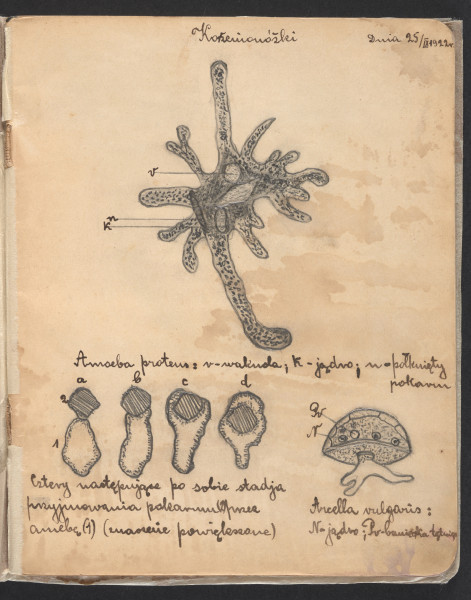 Korzenionóżki
Dnia 25/II 1922r.
v
n
k
Amoeba proteus: v-wakuola; k-jądro; n-połknięty
pokarm
a b c d
2
1
Pv
N
Cztery następujące po sobie stadja
przyjmowania pokarmu(2)przez
amebę(1) (znacznie powiększone)
Arcella vulgaris:
N-jądro; Pv-banieczka